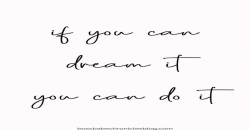 if you can
dream it
you can do it